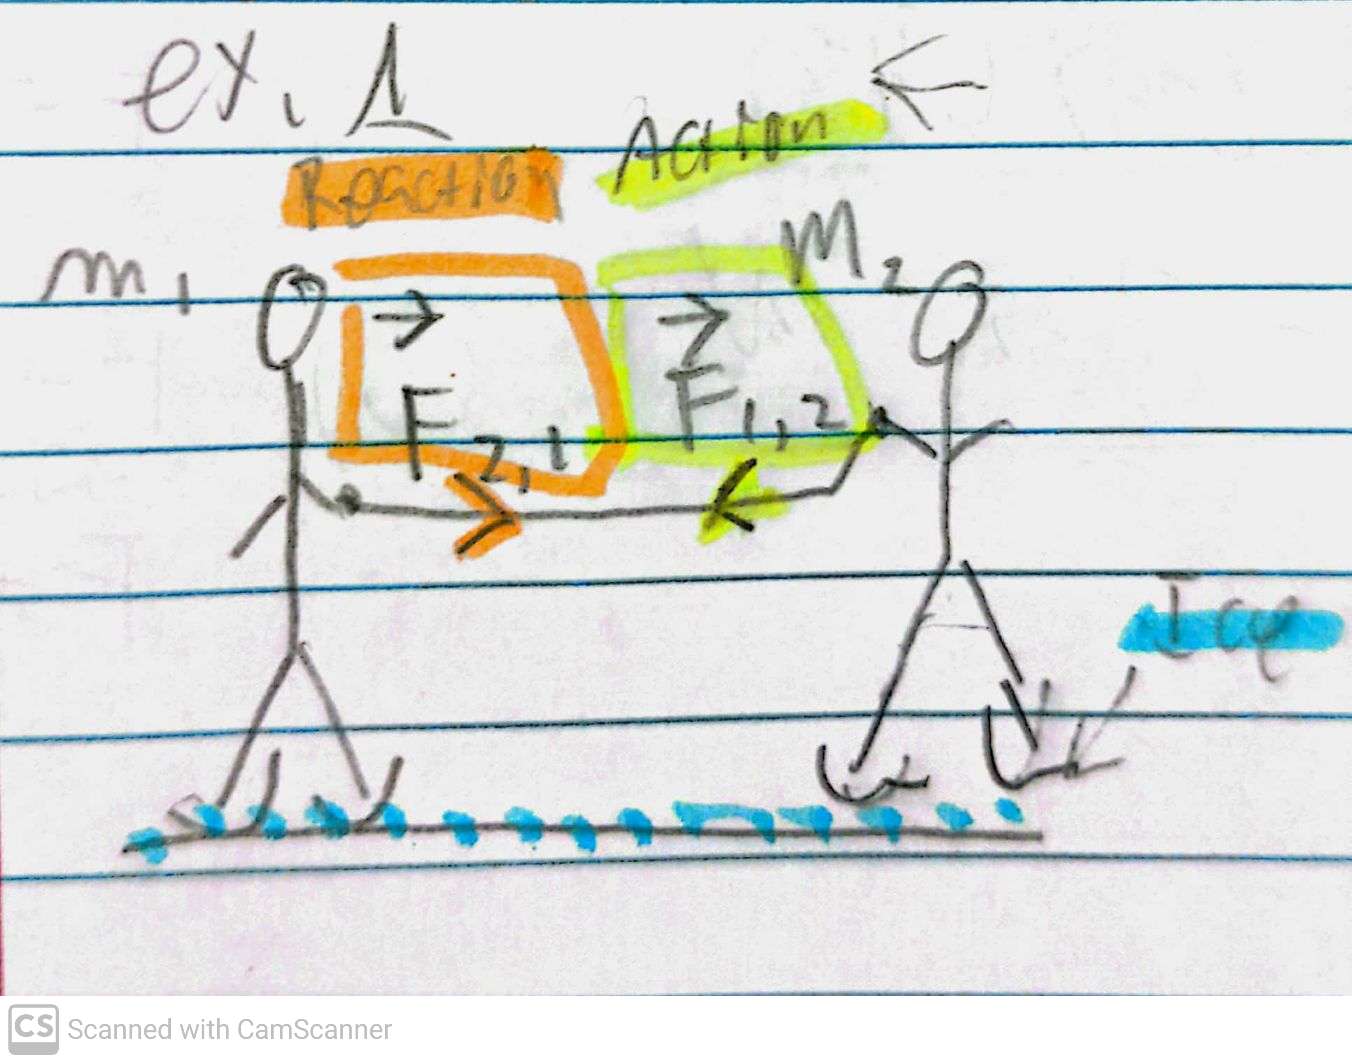 ex. 1
Action
Reaction
m1
M2
F2,1
F1,2
Ice
CS Scanned with CamScanner